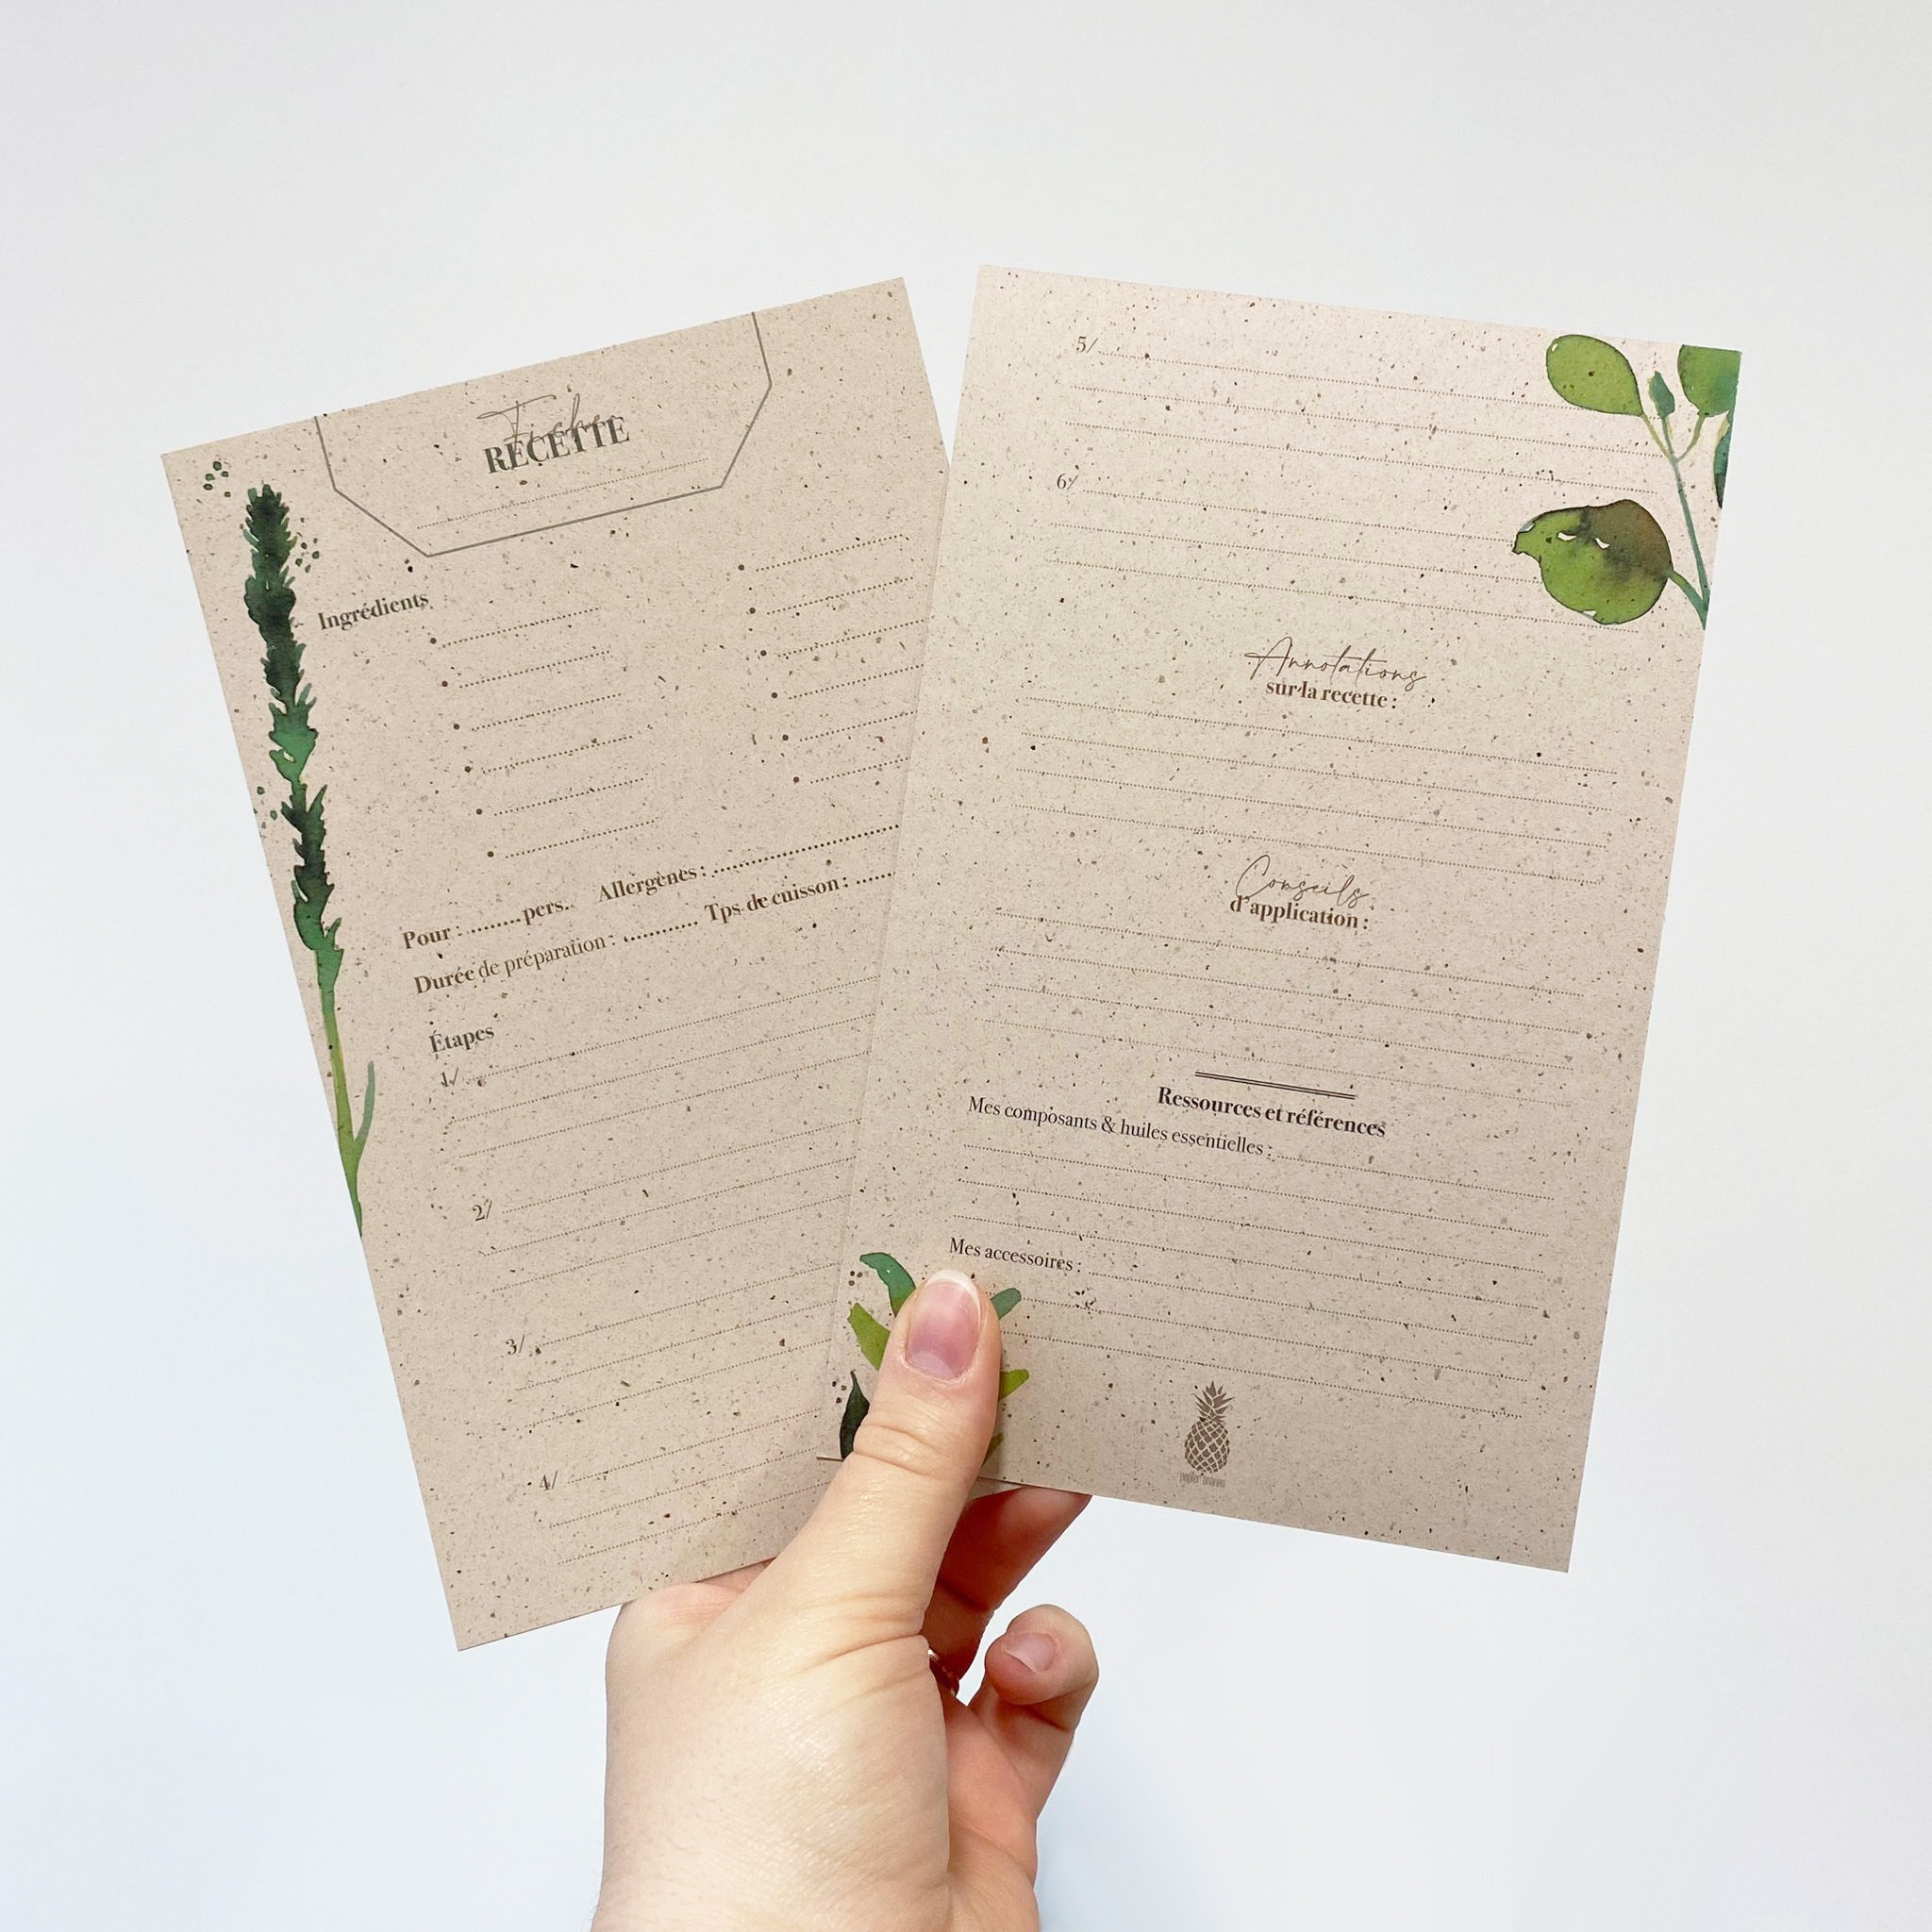 Fiche
RECETTE
Ingrédients
Pour : ........ pers. Allergènes : ........................
Durée de préparation : ............ Tps de cuisson : ......
Étapes
1/
2/
3/
4/
5/
6/
Annotations
sur la recette :
Conseils
d'application :
Ressources et références
Mes composants & huiles essentielles :
Mes accessoires :